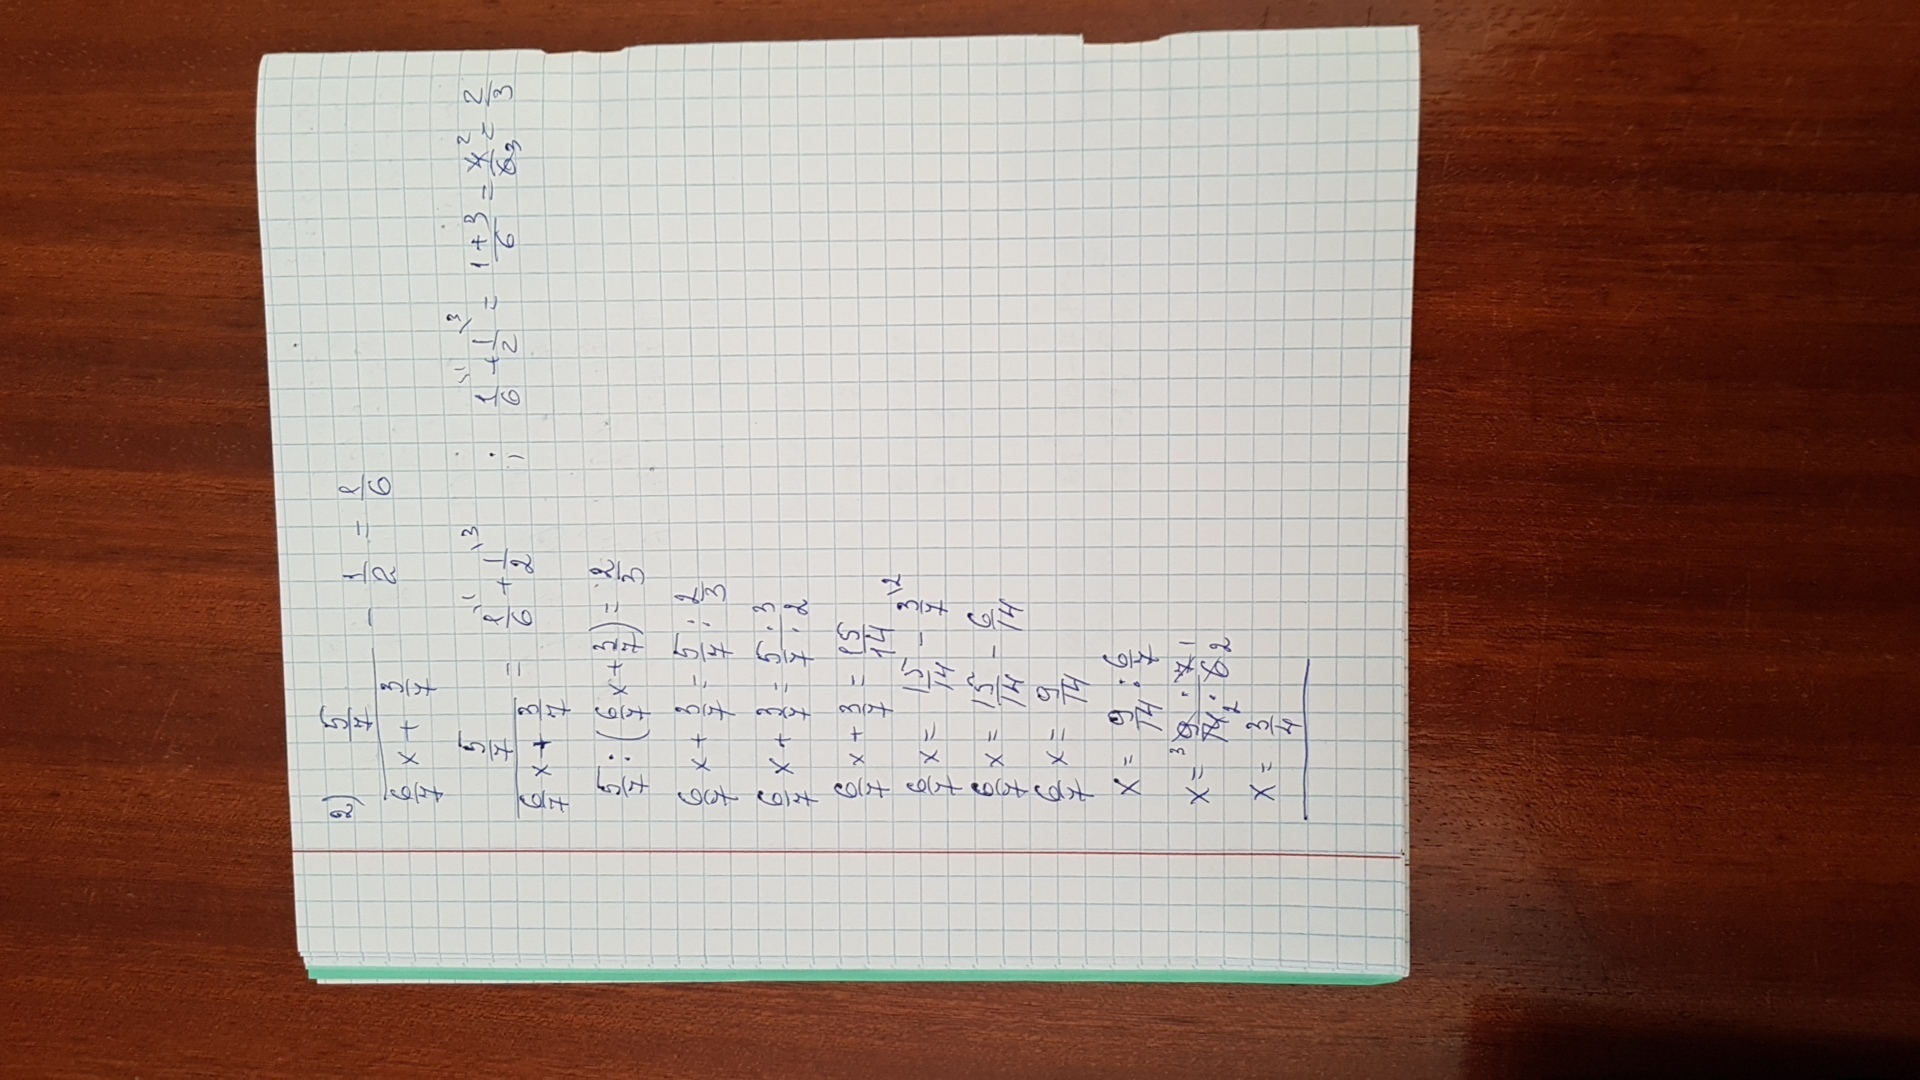 2) 5/7 / (6/7 x + 3/7) - 1/2 = 1/6
5/7 / (6/7 x + 3/7) = 1/6 \1 + 1/2 \3 ; 1/6 \1 + 1/2 \3 = (1+3)/6 = 4 2/6 3 = 2/3
5/7 : (6/7 x + 3/7) = 2/3
6/7 x + 3/7 = 5/7 : 2/3
6/7 x + 3/7 = 5·3/7·2
6/7 x + 3/7 = 15/14
6/7 x = 15/14 - 3/7 \2
6/7 x = 15/14 - 6/14
6/7 x = 9/14
x = 9/14 : 6/7
x = 3 9·7 1/14 2·6 2
x = 3/4